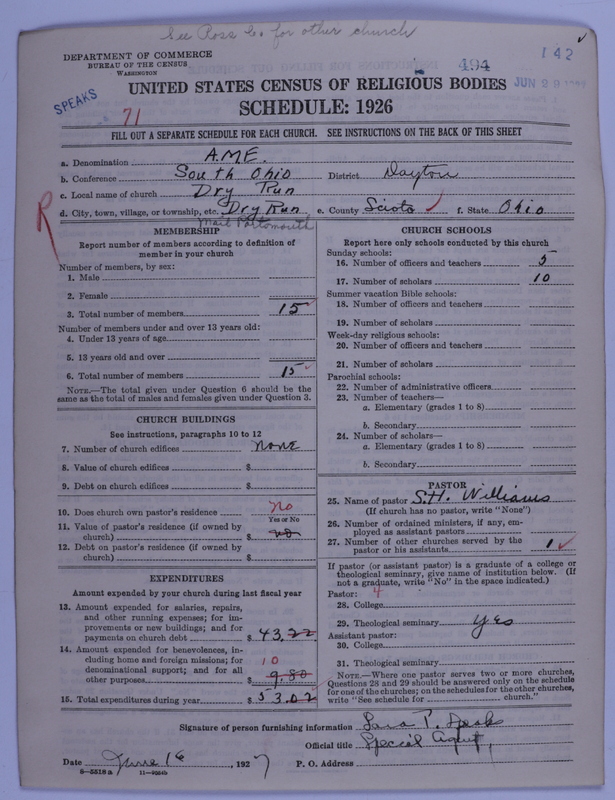 See Ross Co. for other church
DEPARTMENT OF COMMERCE
BUREAU OF THE CENSUS
WASHINGTON
494
142
JUN 29
SPEAKS
71
UNITED STATES CENSUS OF RELIGIOUS BODIES
SCHEDULE: 1926
FILL OUT A SEPARATE SCHEDULE FOR EACH CHURCH. SEE INSTRUCTIONS ON THE BACK OF THIS SHEET
a. Denomination A.M.E.
b. Conference South Ohio District Dayton
c. Local name of church Dry Run
d. City, town, village, or township, etc. Dry Run e. County Scioto f. State Ohio
Mail Portsmouth
R
MEMBERSHIP
Report number of members according to definition of
member in your church
Number of members, by sex:
1. Male
2. Female
3. Total number of members 15
Number of members under and over 13 years old:
4. Under 13 years of age
5. 13 years old and over
6. Total number of members 15
NOTE.—The total given under Question 6 should be the
same as the total of males and females given under Question 3.
CHURCH BUILDINGS
See instructions, paragraphs 10 to 12
7. Number of church edifices none
8. Value of church edifices $
9. Debt on church edifices $
10. Does church own pastor's residence no
Yes or No
11. Value of pastor's residence (if owned by
church) $ no
12. Debt on pastor's residence (if owned by
church) $
EXPENDITURES
Amount expended by your church during last fiscal year
13. Amount expended for salaries, repairs,
and other running expenses; for im-
provements or new buildings; and for
payments on church debt $ 43.22
14. Amount expended for benevolences, in-
cluding home and foreign missions; for
denominational support; and for all
other purposes $ 9.80
10
15. Total expenditures during year $ 53.02
CHURCH SCHOOLS
Report here only schools conducted by this church
Sunday schools:
16. Number of officers and teachers 5
17. Number of scholars 10
Summer vacation Bible schools:
18. Number of officers and teachers
19. Number of scholars
Week-day religious schools:
20. Number of officers and teachers
21. Number of scholars
Parochial schools:
22. Number of administrative officers
23. Number of teachers—
a. Elementary (grades 1 to 8)
b. Secondary
24. Number of scholars—
a. Elementary (grades 1 to 8)
b. Secondary
PASTOR
25. Name of pastor S.H. Williams
(If church has no pastor, write "None")
26. Number of ordained ministers, if any, em-
ployed as assistant pastors
27. Number of other churches served by the
pastor or his assistants 1
If pastor (or assistant pastor) is a graduate of a college or
theological seminary, give name of institution below. (If
not a graduate, write "No" in the space indicated.)
Pastor: 4
28. College
29. Theological seminary yes
Assistant pastor:
30. College
31. Theological seminary
NOTE.—Where one pastor serves two or more churches,
Questions 28 and 29 should be answered only on the schedule
for one of the churches; on the schedules for the other churches,
write "See schedule for church."
Signature of person furnishing information
Official title Special Agent,
Date June 16, 1927 P. O. Address
8-5518a 11-9954b